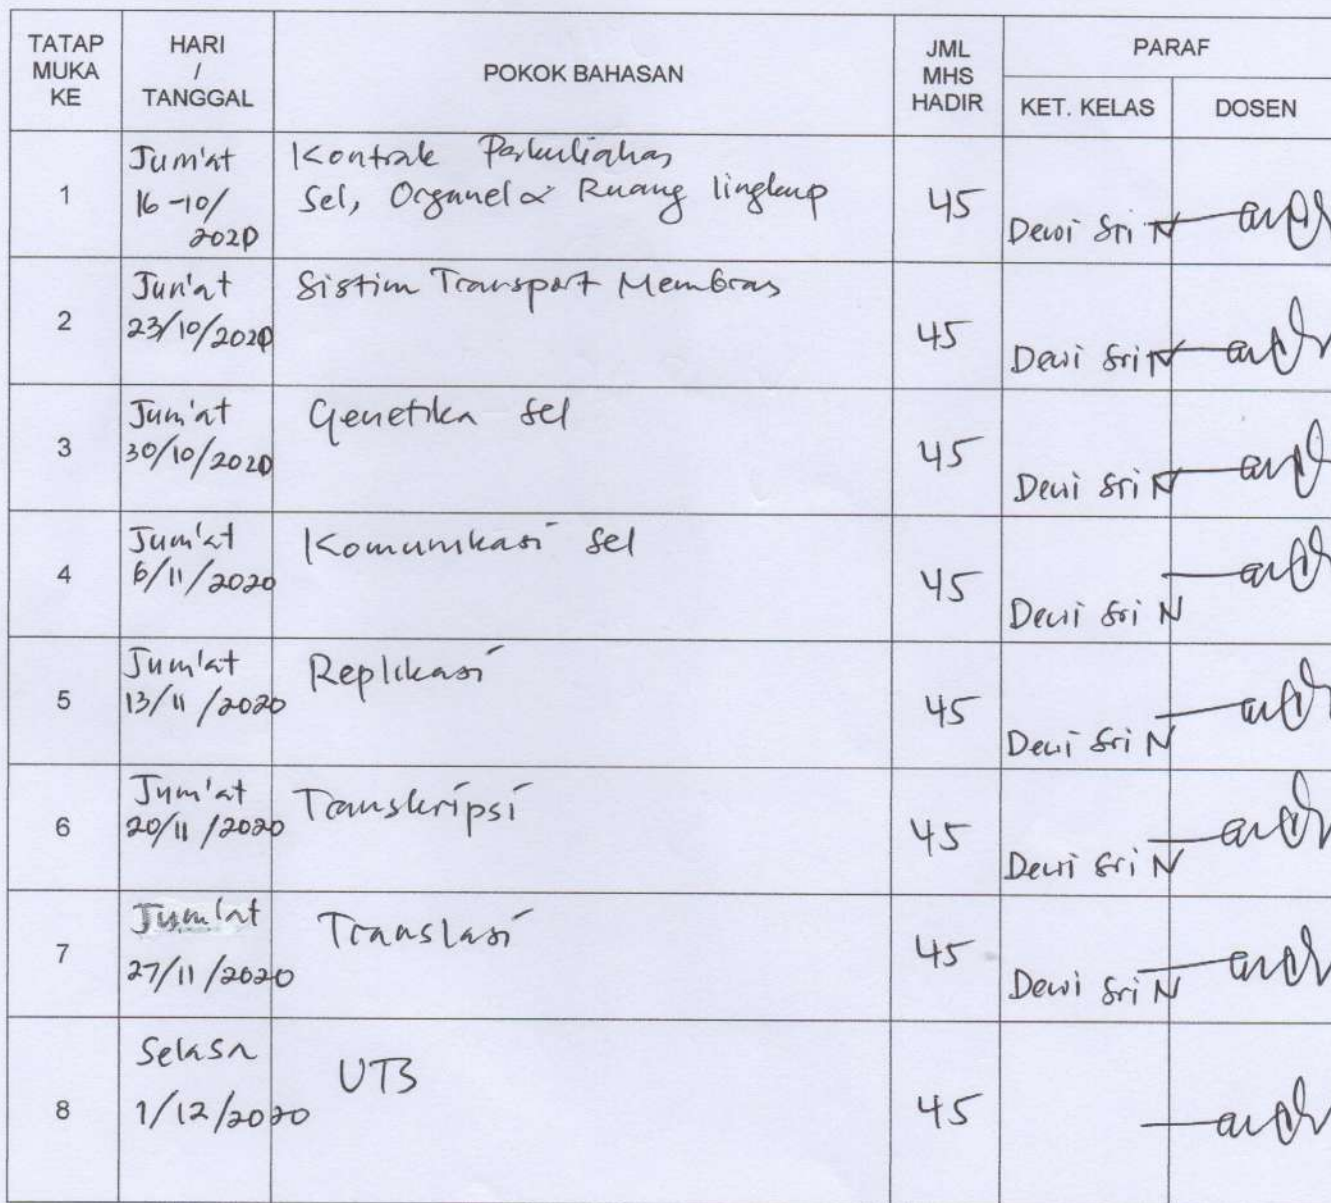 TATAP MUKA KE HARI / TANGGAL POKOK BAHASAN JML MHS HADIR PARAF
KET. KELAS DOSEN
1 Jum'at 16-10/2020 Kontrak Perkuliahan
Sel, Organel & Ruang lingkup 45 Dewi Sri N
2 Jum'at 23/10/2020 Sistim Transport Membran 45 Dewi Sri N
3 Jum'at 30/10/2020 Genetika Sel 45 Dewi Sri N
4 Jum'at 6/11/2020 Komunikasi Sel 45 Dewi Sri N
5 Jum'at 13/11/2020 Replikasi 45 Dewi Sri N
6 Jum'at 20/11/2020 Transkripsi 45 Dewi Sri N
7 Jum'at 27/11/2020 Translasi 45 Dewi Sri N
8 Selasa 1/12/2020 UTB 45